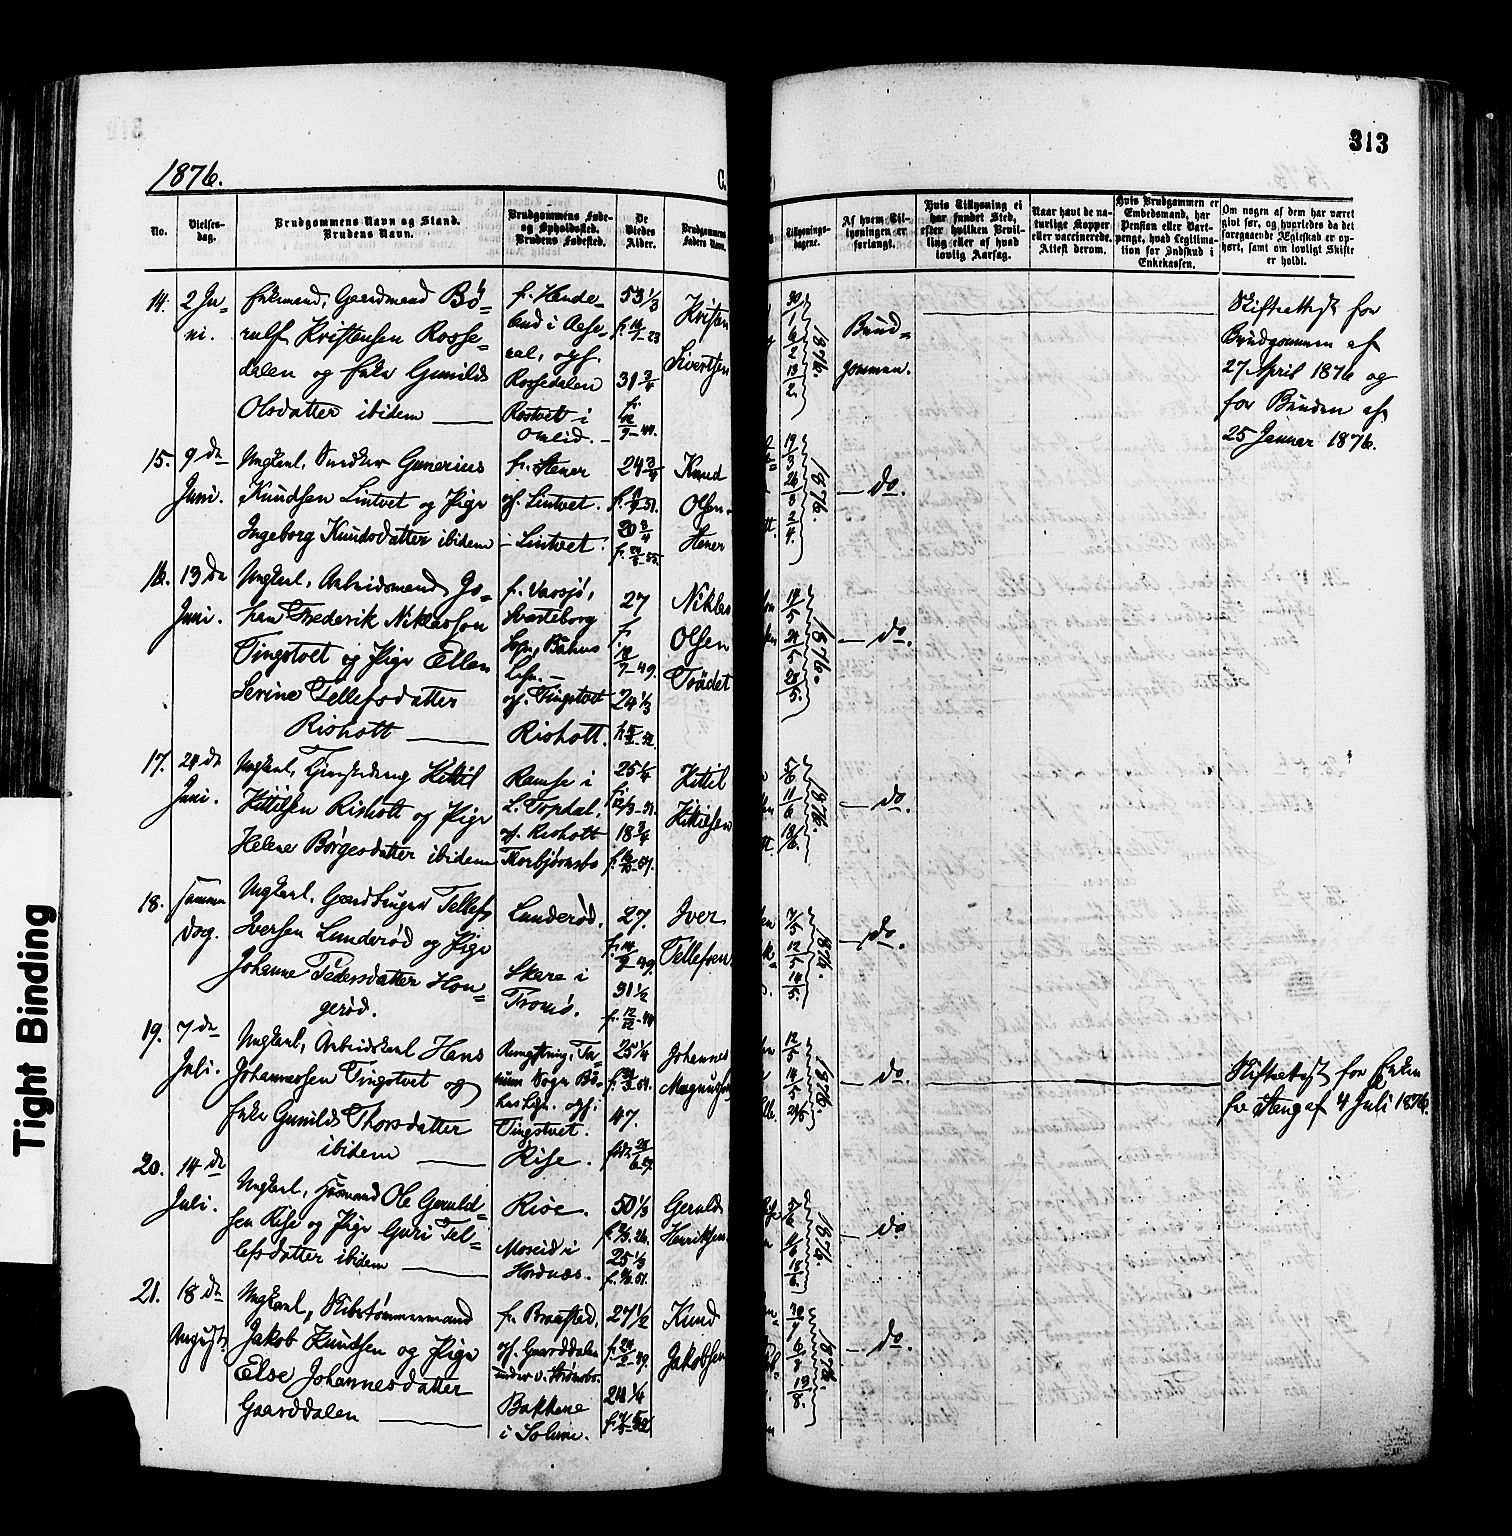 313
1876.
C.
No.
Vielses-
dag.
Brudgommens Navn og Stand.
Brudens Navn.
Brudgommens Føde-
og Opholdssted.
Brudens Fødested.
De
Viedes
Alder.
Brudgommens
Faders Navn.
Tillysnings-
dagene.
Af hvem Til-
lysningen er
forlangt.
Hvis Tillysning ei
har fundet Sted,
efter hvilken Bevil-
ling eller af hvad
lovlig Aarsag.
Naar havt de na-
turlige Kopper
eller vaccinerede.
Attest derom.
Hvis Brudgommen er
Embedsmand, har
Pension eller Vart-
penge, hvad Legitima-
tion for Indskud i
Enkekassen.
Om nogen af dem har været
givt før, og hvorledes da det
foregaaende Ægteskab er op-
hørt, samt om lovligt Skifte
er holdt.
14.
2 Ju-
ni.
Enkemand, Gaardmand Bø-
rulf Kristensen Rosse-
dalen og Enke Gunild
Olsdatter ibidem
f. Hande-
land i Aase-
ral, opf.
Rossedalen
Rostvedt i
Omlid.
53 1/3
31 3/4
Kristen
Sivertsen
30/1
6/2
13/2
1876.
Brud-
gommen.
Skifteattest for
Brudgommen af
27 April 1876 og
for Bruden af
25 Januar 1876.
15.
9 de
Juni.
Ungkarl, Snedker Gunerius
Knudsen Lintvet og Pige
Ingeborg Knudsdatter ibidem
f. Hener
of. Lintvet.
Lintvet.
24 3/4
20 3/4
Knud
Olsen
Hener
19/3
26/3
2/4
1876.
do.
16.
13 de
Juni.
Ungkarl, Arbeidsmand Jo-
han Frederik Niklasson
Tingstvet og Pige Ellen
Serine Tellefsdatter
Risholt
Svarteborg
Sogn, Bahus
Lehn.
of. Tingstvet
Risholt.
27
24 1/3
Niklas
Olsen
14/5
21/5
28/5
1876.
do.
17.
24 de
Juni.
Ungkarl, Tjenestedreng Kittil
Kittilsen Risholt og Pige
Helene Børgesdatter ibidem
Ramse i
L. Topdal,
of. Risholt
Thorbjørnsbo
25 1/4
18 3/4
Kittil
Kittilsen
5/6
11/6
18/6
1876.
do.
18.
samme
Dag.
Ungkarl, Gaardbruger Tellef
Iversen Lunderød og Pige
Johanne Pedersdatter Hon-
gerød.
Lunderød.
Skare i
Tromø.
27.
31 1/2
Iver
Tellefsen
7/5
12/5
14/5
1876.
do.
19.
7 de
Juli.
Ungkarl, Arbeidskarl Hans
Johannessen Tingstvet og
Enke Gunild Thorsdatter
ibidem
Tingstvet.
Rise.
25 1/4
47.
Johannes
Magnussen
12/5
14/5
21/5
1876.
do.
Skifteattest for Enken
fra af 4 Juli 1876.
20.
14 de
Juli.
Ungkarl, Husmand Ole Geruld-
sen Rise og Pige Guri Tel-
lefsdatter ibidem
Rise.
Moseid i
Hordnæs.
50 1/3
25 1/3
Geruld
Henriksen
5/6
11/6
18/6
1876.
do
21.
18 de
August
Ungkarl, Skibstømmermand
Jakob Knudsen og Pige
Else Johannesdatter
Gaarddalen
f. Braasted,
of. Gaarddalen
under v. Strømsbo.
Bakkene
i Solum.
27 1/2
24 1/4
Knud
Jakobsen
30/7
6/8
13/8
1876.
do.
Tight Binding